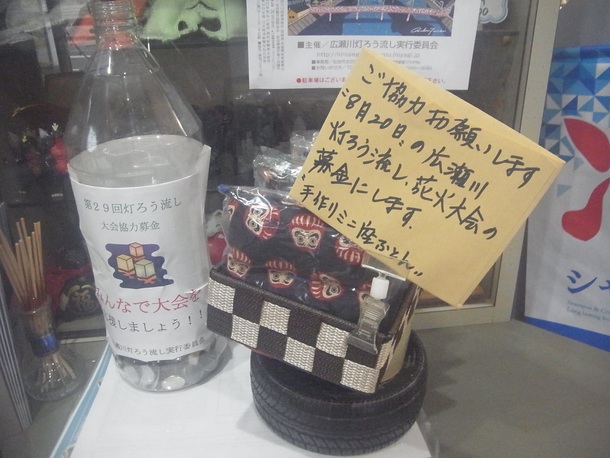 ■主催／広瀬川灯ろう流し実行委員会
ご協力お願いします
8月20日の広瀬川
灯ろう流し、花火大会の
募金にします。
手作りミニ座ぶとん
第29回灯ろう流し
大会協力募金
みんなで大会を
しましょう！！
瀬川灯ろう流し実行委員会
シャ